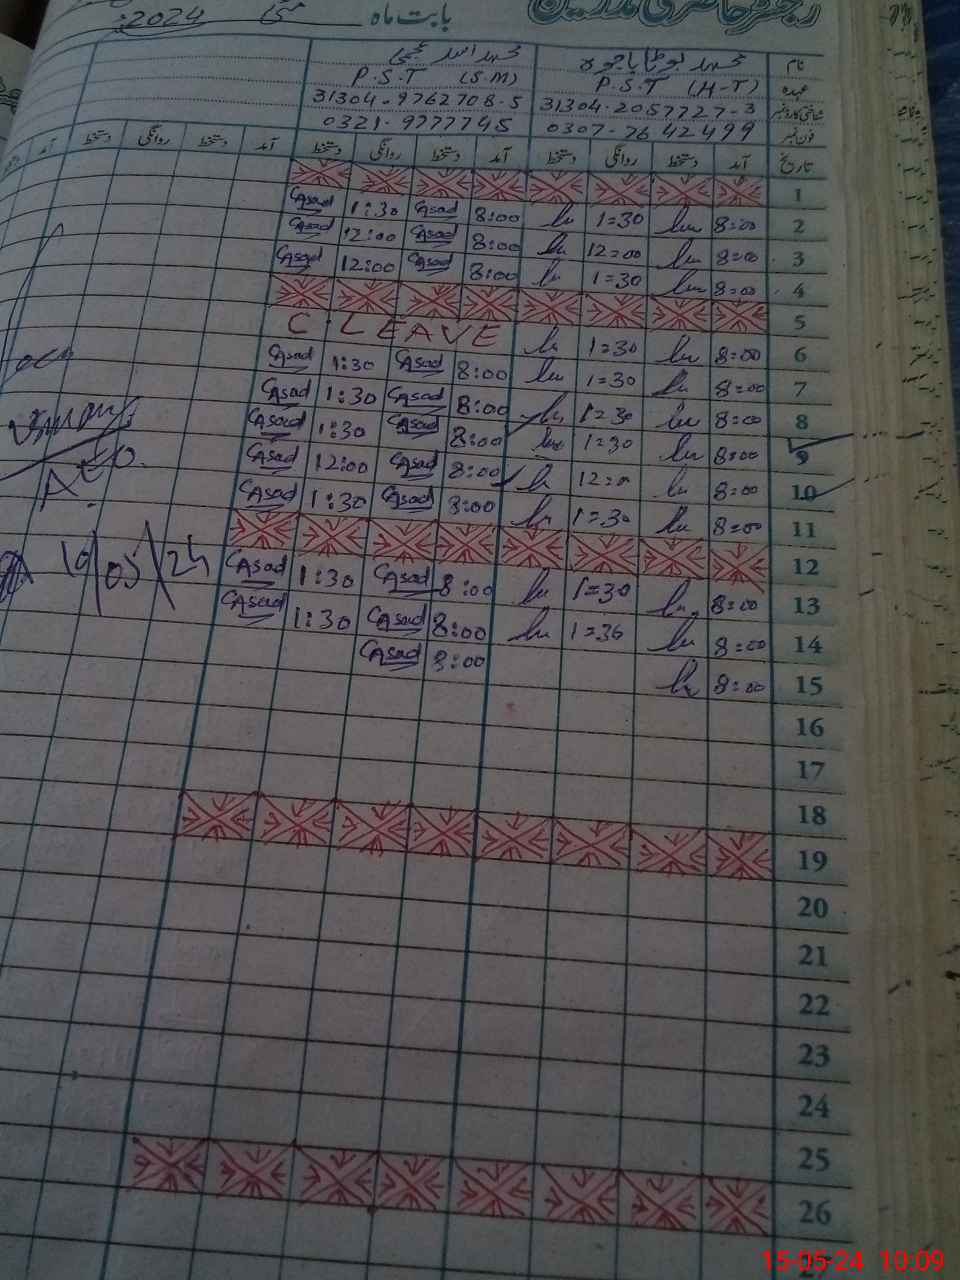 رجسٹر حاضری مدرسین
بابت ماہ مئی 2024
نام محمد بوٹا باجوہ محمد اسد نجمی
عہدہ P.S.T (H-T) P.S.T (S.M)
شناختی کارڈ نمبر 31304-2057727-3 31304-9762708-5
فون نمبر 0307-7642499 0321-9777745
تاریخ آمد دستخط روانگی دستخط آمد دستخط روانگی دستخط آمد دستخط روانگی دستخط آمد
1
2 8=00 1=30 8:00 Asad 1:30 Asad
3 8=00 12=00 8:00 Asad 12:00 Asad
4 8=00 1=30 8:00 Asad 12:00 Asad
5
6 8=00 1=30 C.LEAVE
7 8=00 1=30 8:00 Asad 1:30 Asad
8 8=00 1=30 8:00 Asad 1:30 Asad
9 8=00 1=30 8:00 Asad 1:30 Asad
10 8=00 8:00 Asad 12:00 Asad
11 8=00 1=30 8:00 Asad 1:30 Asad
12
13 8=00 1=30 8:00 Asad 1:30 Asad
14 8=00 1=30 8:00 Asad 1:30 Asad
15 8=00 8:00 Asad
16
17
18
19
20
21
22
23
24
25
26
27
AEO
10/05/24
15-05-24 10:09